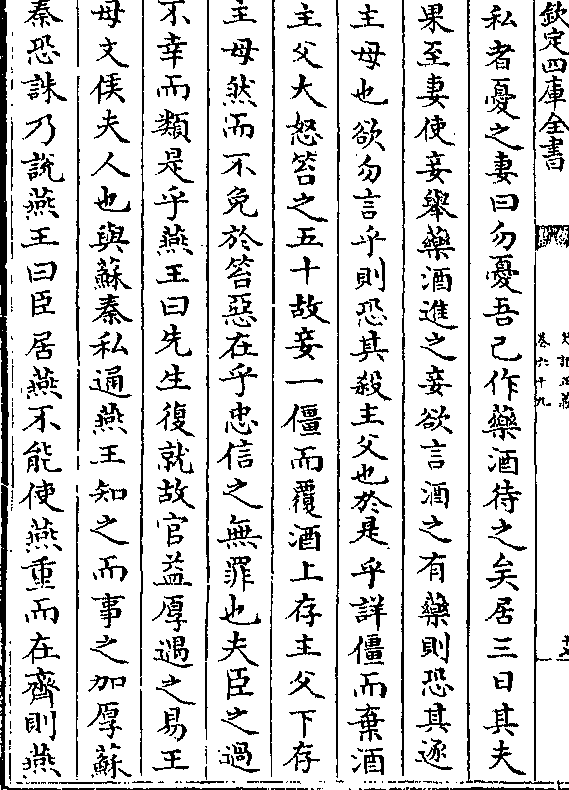 欽定四庫全書
卷六十九
私者憂之妻曰勿憂吾已作藥酒待之矣居三日其夫
果至妻使妾舉藥酒進之妾欲言酒之有藥則恐其逐
主母也欲勿言乎則恐其殺主父也於是乎詳僵而棄酒
主父大怒笞之五十故妾一僵而覆酒上存主父下存
主母然而不免於笞惡在乎忠信之無罪也夫臣之過
不幸而類是乎燕王曰先生復就故官益厚遇之易王
母文侯夫人也與蘇秦私通燕王知之而事之加厚蘇
秦恐誅乃說燕王曰臣居燕不能使燕重而在齊則燕